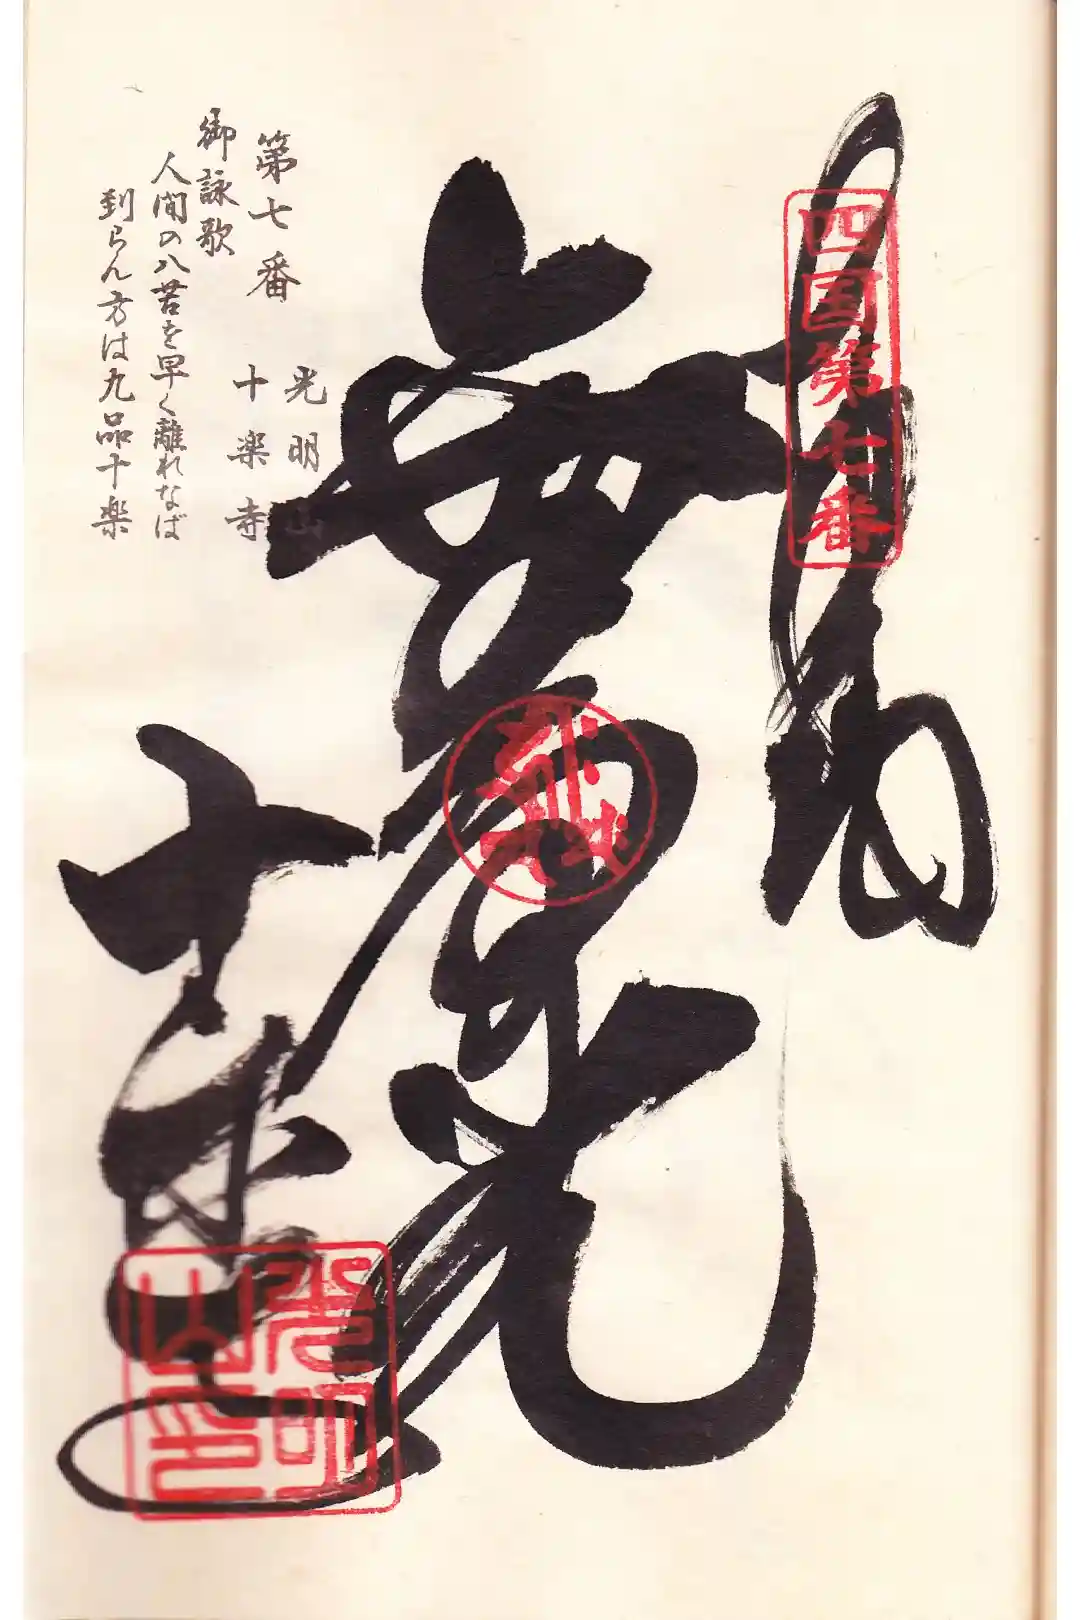 四国第七番
奉納
無量光
十楽寺
光明山印
第七番
光明山
十楽寺
御詠歌
人間の八苦を早く離れなば
到らん方は九品十楽